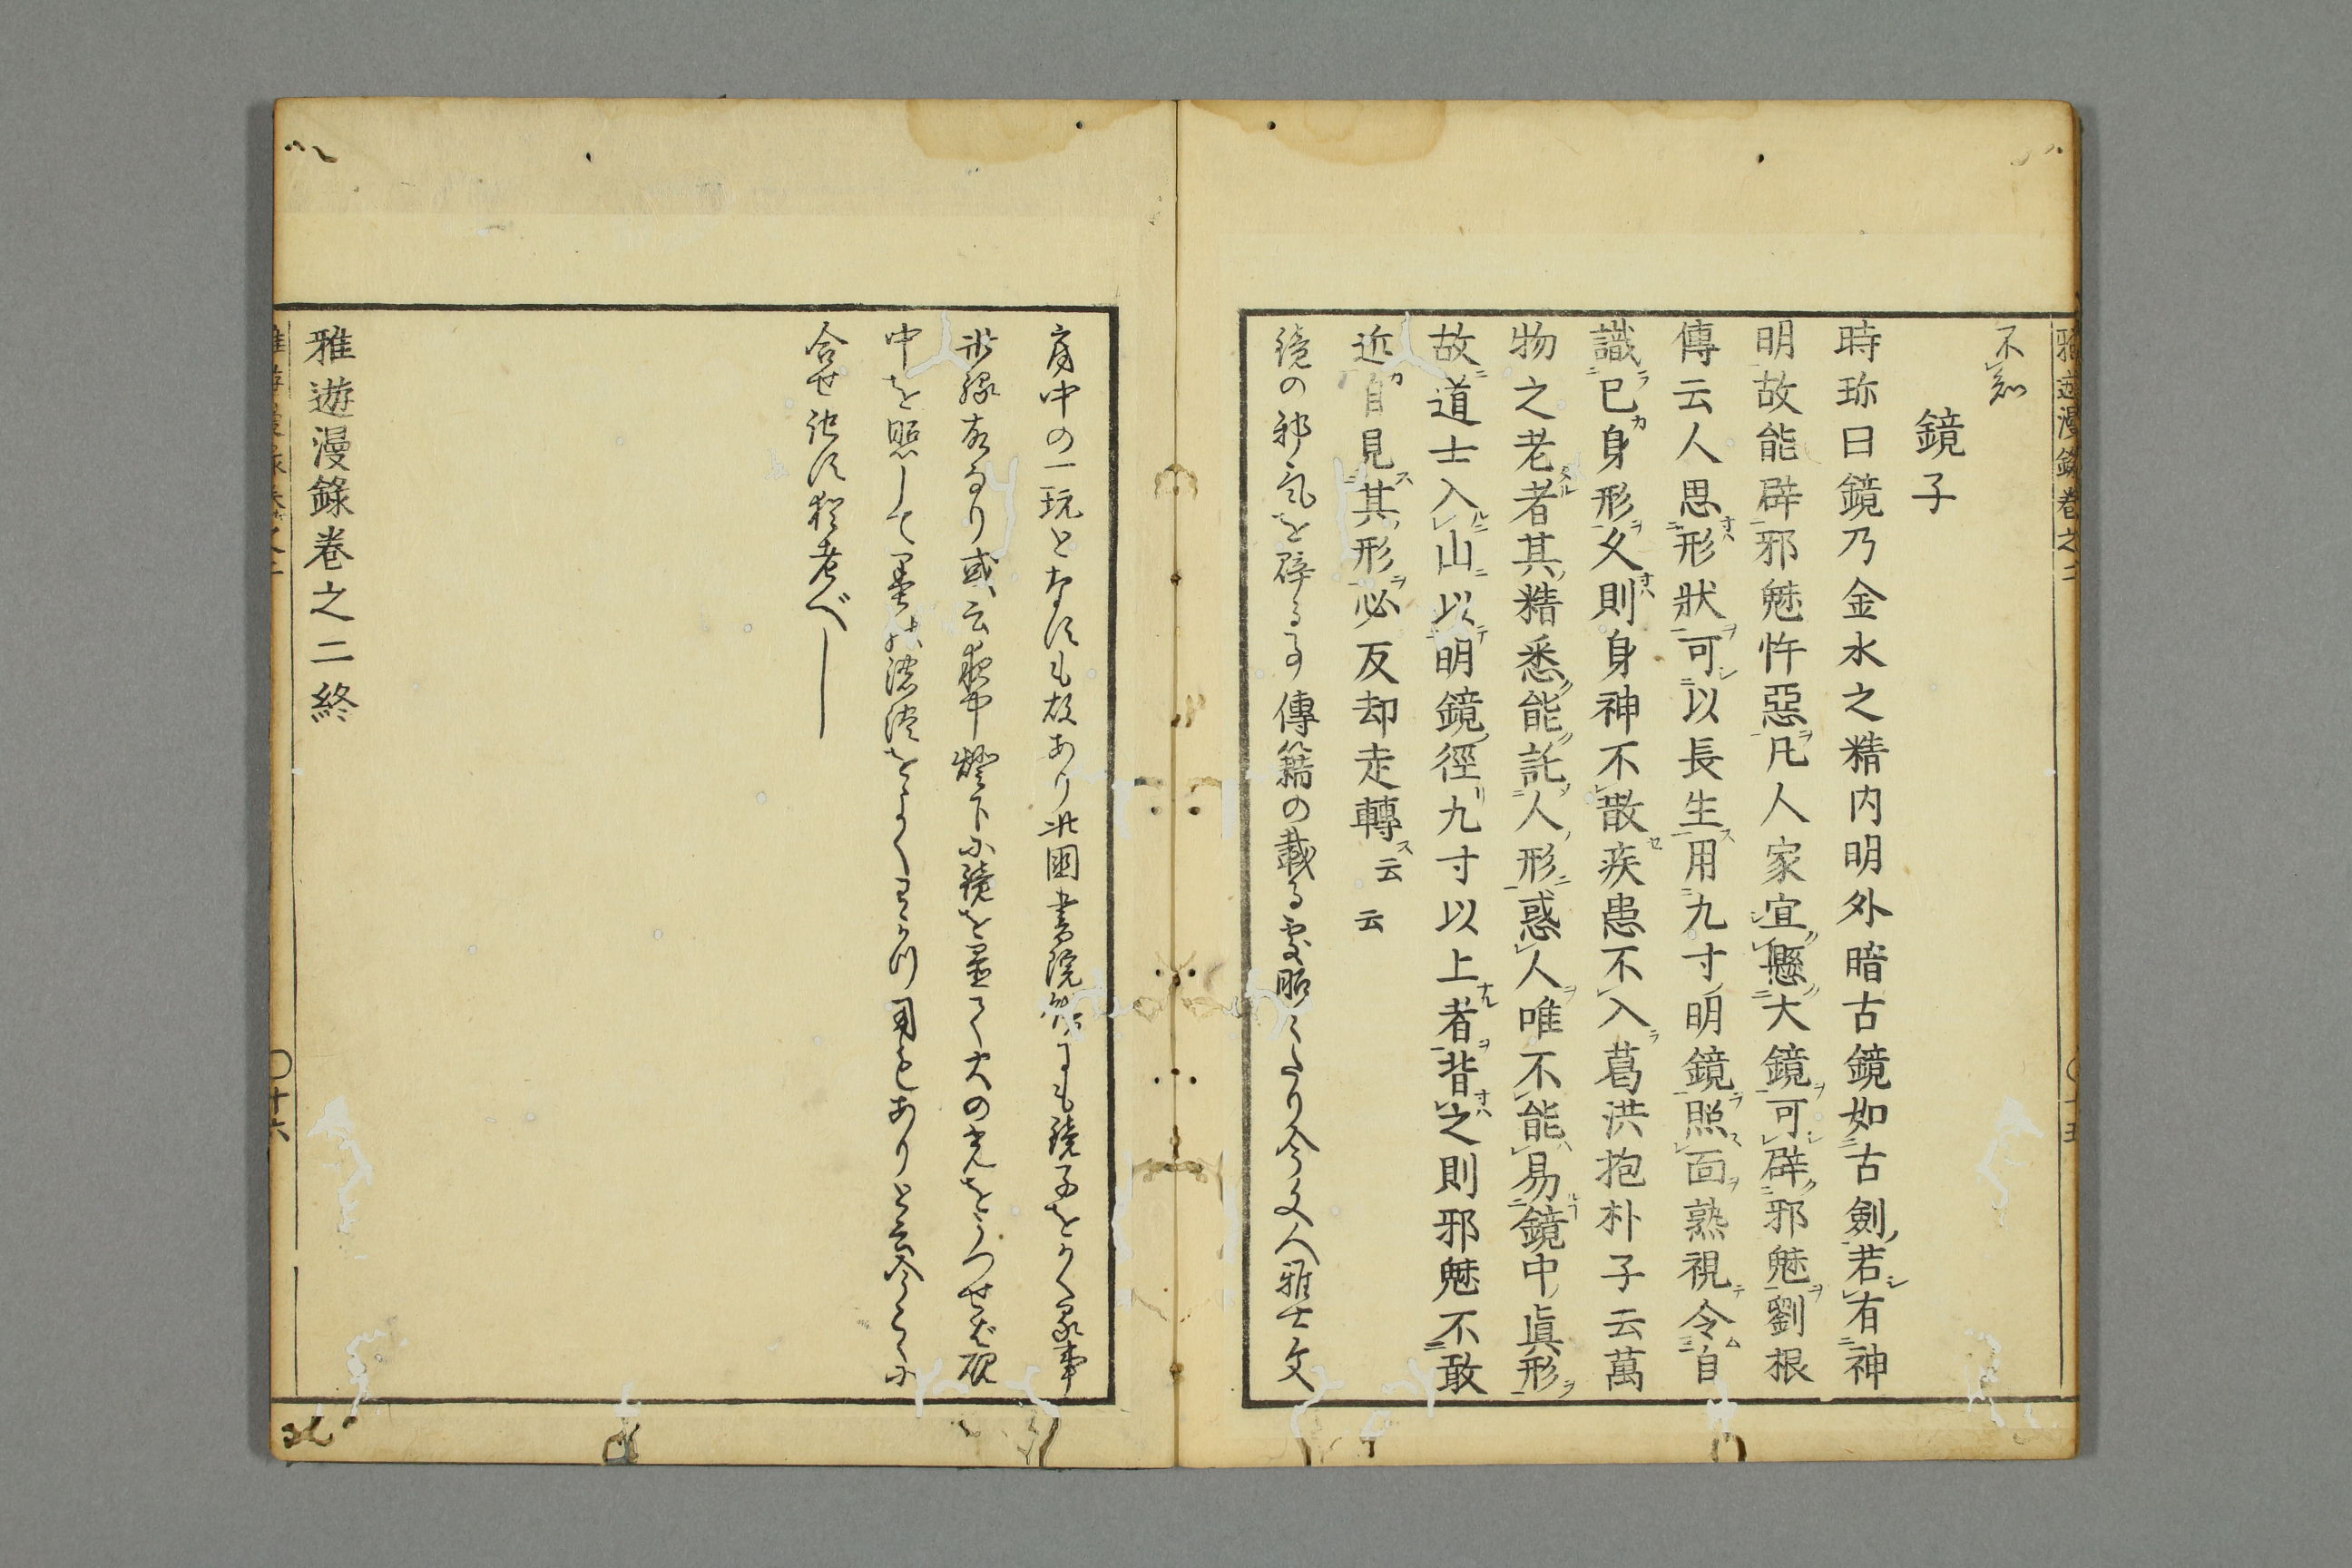 雅遊漫錄卷之二
不知
鏡子
時珍曰鏡乃金水之精内明外暗古鏡如古劍若有神
明故能辟邪魅忤惡凡人家宜懸大鏡可辟邪魅劉根
傳云人思形狀可以長生用九寸明鏡照面熟視令自
識己身形久則身神不散疾患不入葛洪抱朴子云萬
物之老者其精悉能託人形惑人唯不能易鏡中眞形
故道士入山以明鏡徑九寸以上者背之則邪魅不敢
近自見其形必反却走轉云云
鏡の邪氣を辟る事傳籍の載る處昭〱たり今文人雅士文
房中の一玩となすも故あり此國書院錺にも鏡子をかく事
此縁故なり或云夜中燈下に鏡を置て火の光をうつせば硯
中を照して墨の濃淡をよくわかつ用もありと云今こゝに
合せ記す猶考べし
雅遊漫錄卷之二終
十六